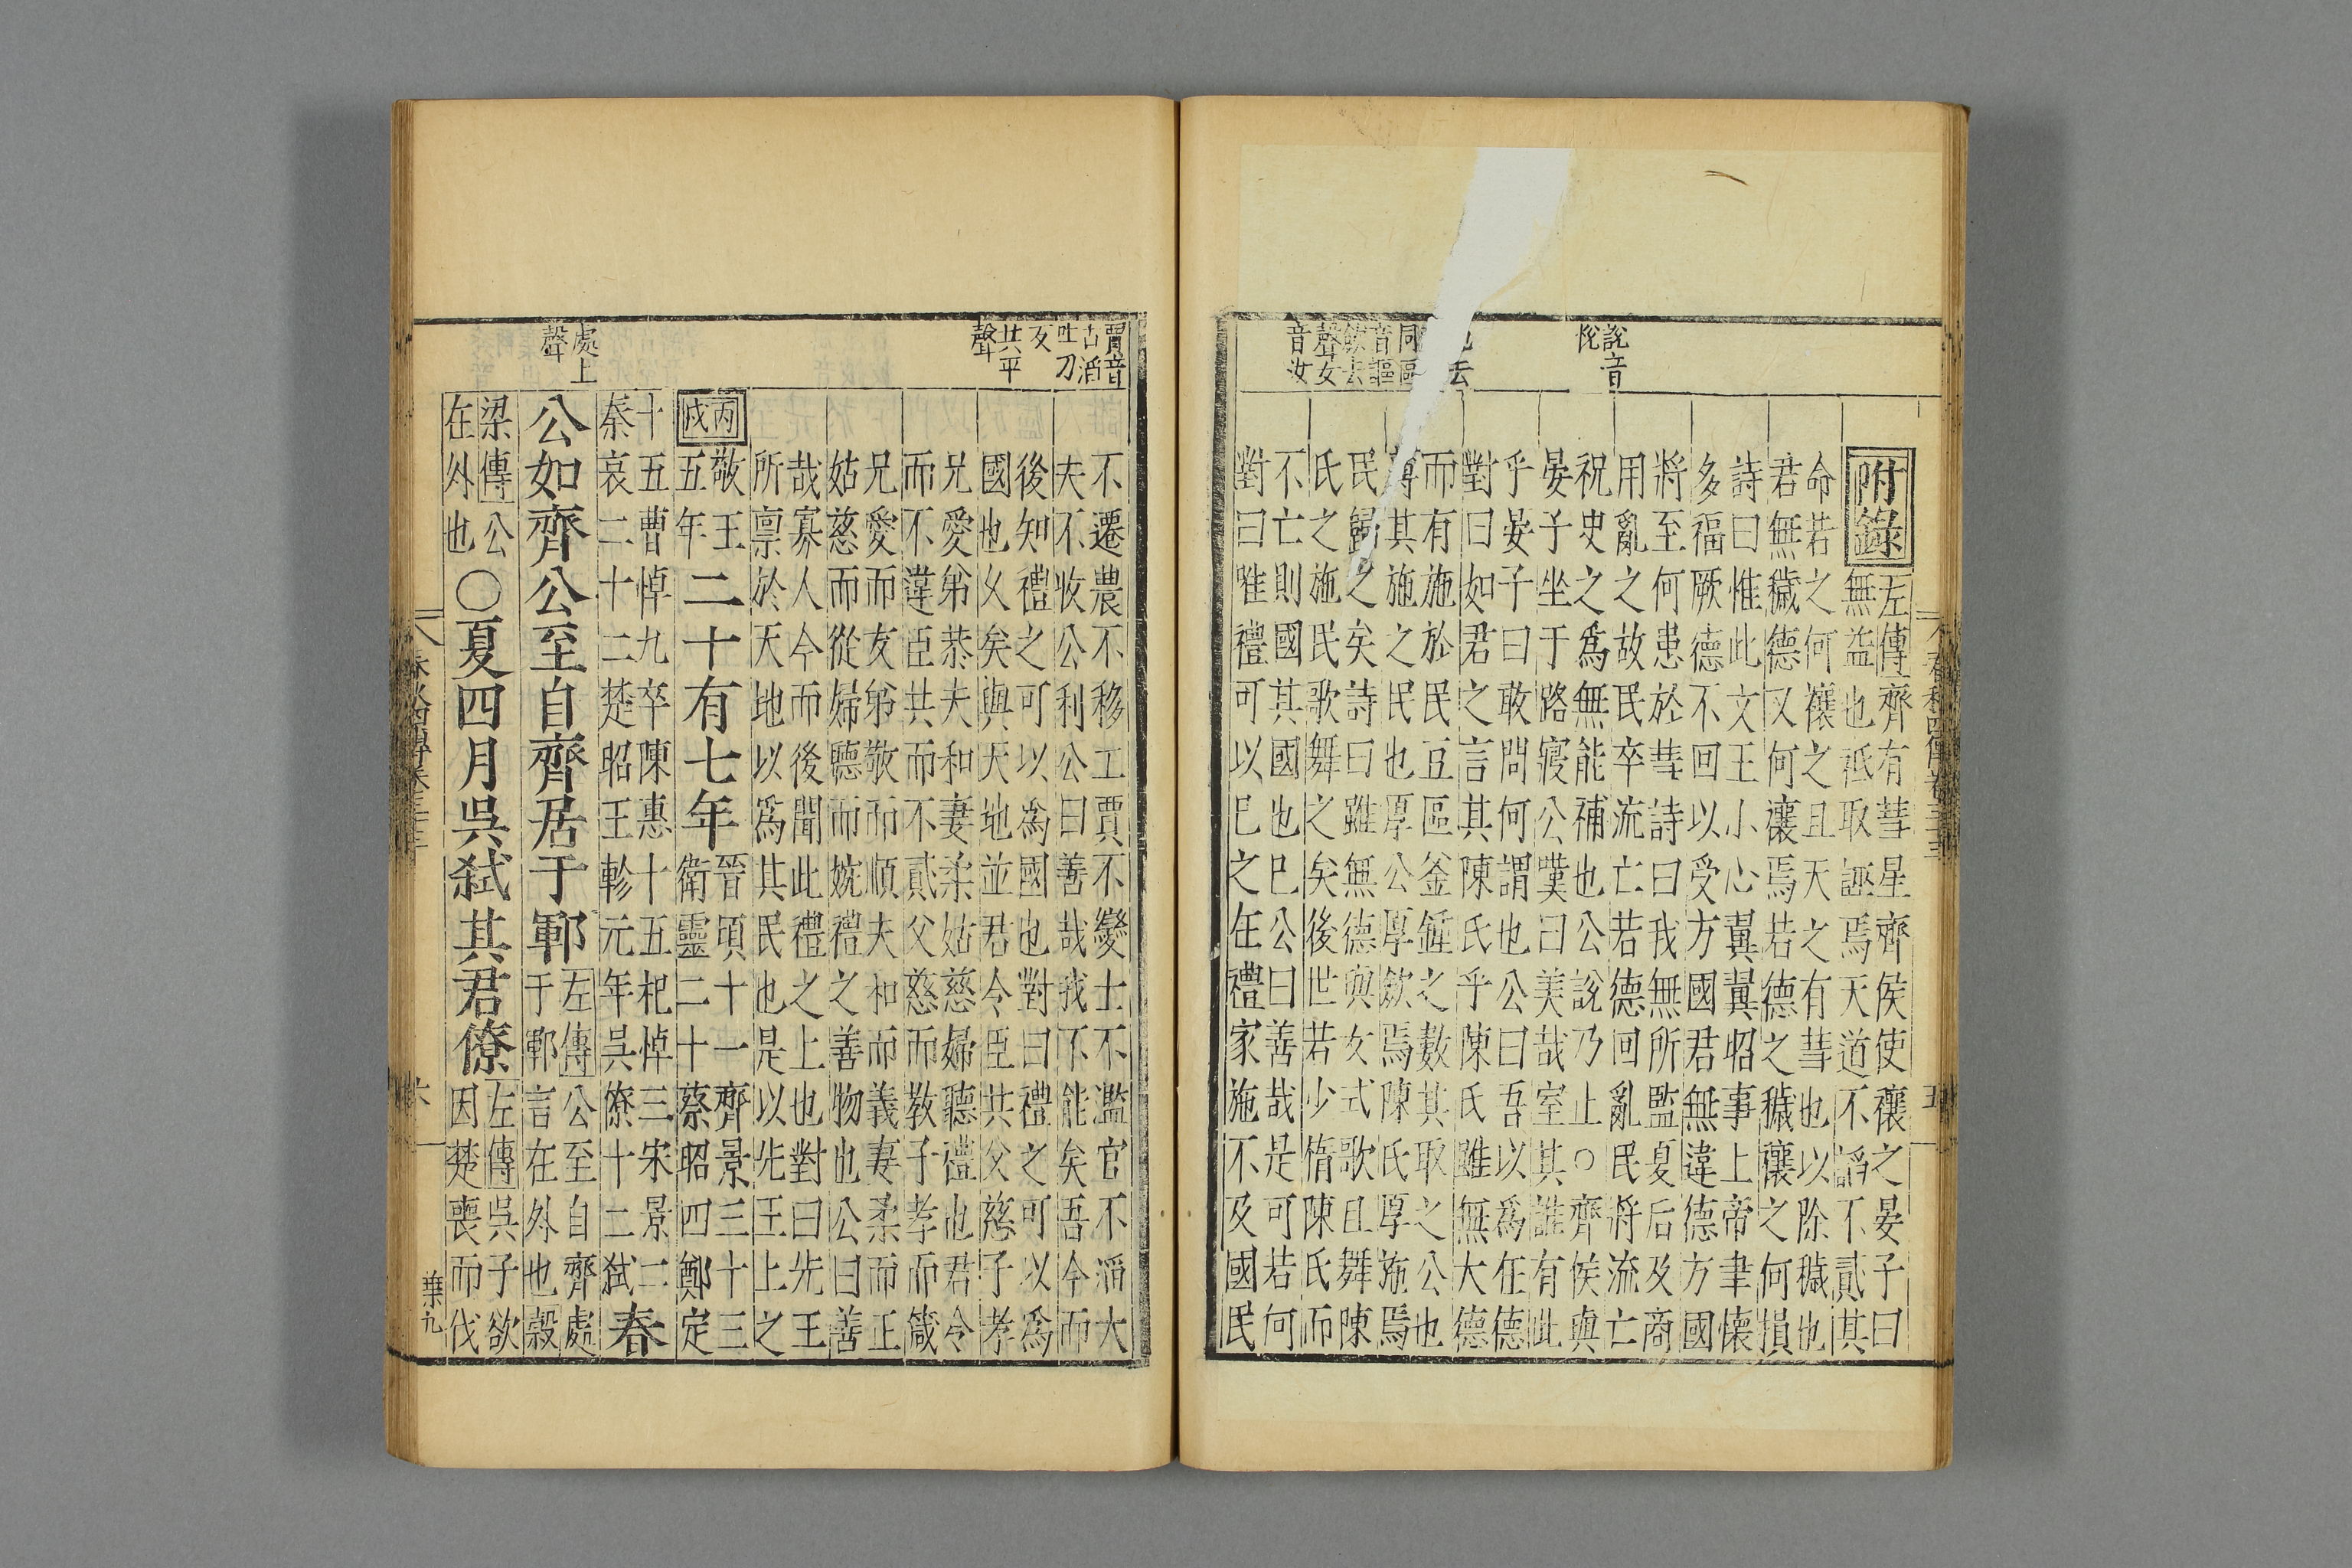 說音
悅
去
同區
音謳
歛去
聲女
音汝
春秋四傳卷三十三
五
附錄
左傳齊有彗星齊侯使禳之晏子曰
無益也祗取誣焉天道不謟不貳其
命若之何禳之且天之有彗也以除穢也
君無穢德又何禳焉若德之穢禳之何損
詩曰惟此文王小心翼翼昭事上帝聿懷
多福厥德不回以受方國君無違德方國
將至何患於彗詩曰我無所監夏后及商
用亂之故民卒流亡若德回亂民將流亡
祝史之爲無能補也公說乃止○齊侯與
晏子坐于路寢公嘆曰美哉室其誰有此
乎晏子曰敢問何謂也公曰吾以爲在德
對曰如君之言其陳氏乎陳氏雖無大德
而有施於民豆區釜鍾之數其取之公也
薄其施之民也厚公厚歛焉陳氏厚施焉
民歸之矣詩曰雖無德與女式歌且舞陳
氏之施民歌舞之矣後世若少惰陳氏而
不亡則國其國也已公曰善哉是可若何
對曰唯禮可以已之在禮家施不及國民
賈音
古滔
吐刀
反
共平
聲
處上
聲
不遷農不移工賈不變士不濫官不滔大
夫不收公利公曰善哉我不能矣吾今而
後知禮之可以爲國也對曰禮之可以爲
國也久矣與天地並君令臣共父慈子孝
兄愛弟恭夫和妻柔姑慈婦聽禮也君令
而不違臣共而不貳父慈而教子孝而箴
兄愛而友弟敬而順夫和而義妻柔而正
姑慈而從婦聽而婉禮之善物也公曰善
哉寡人今而後聞此禮之上也對曰先王
所禀於天地以爲其民也是以先王上之
丙戌敬王五年二十有七年晉頃十一齊景三十三衛靈二十蔡昭四鄭定
十五曹悼九卒陳惠十五杞悼三宋景二
秦哀二十二楚昭王軫元年吳僚十二弒春
公如齊公至自齊居于鄆左傳公至自齊處于鄆言在外也穀
梁傳公在外也○夏四月吳弒其君僚左傳吳子欲因楚喪而伐
春秋四傳卷三十三
六
華九